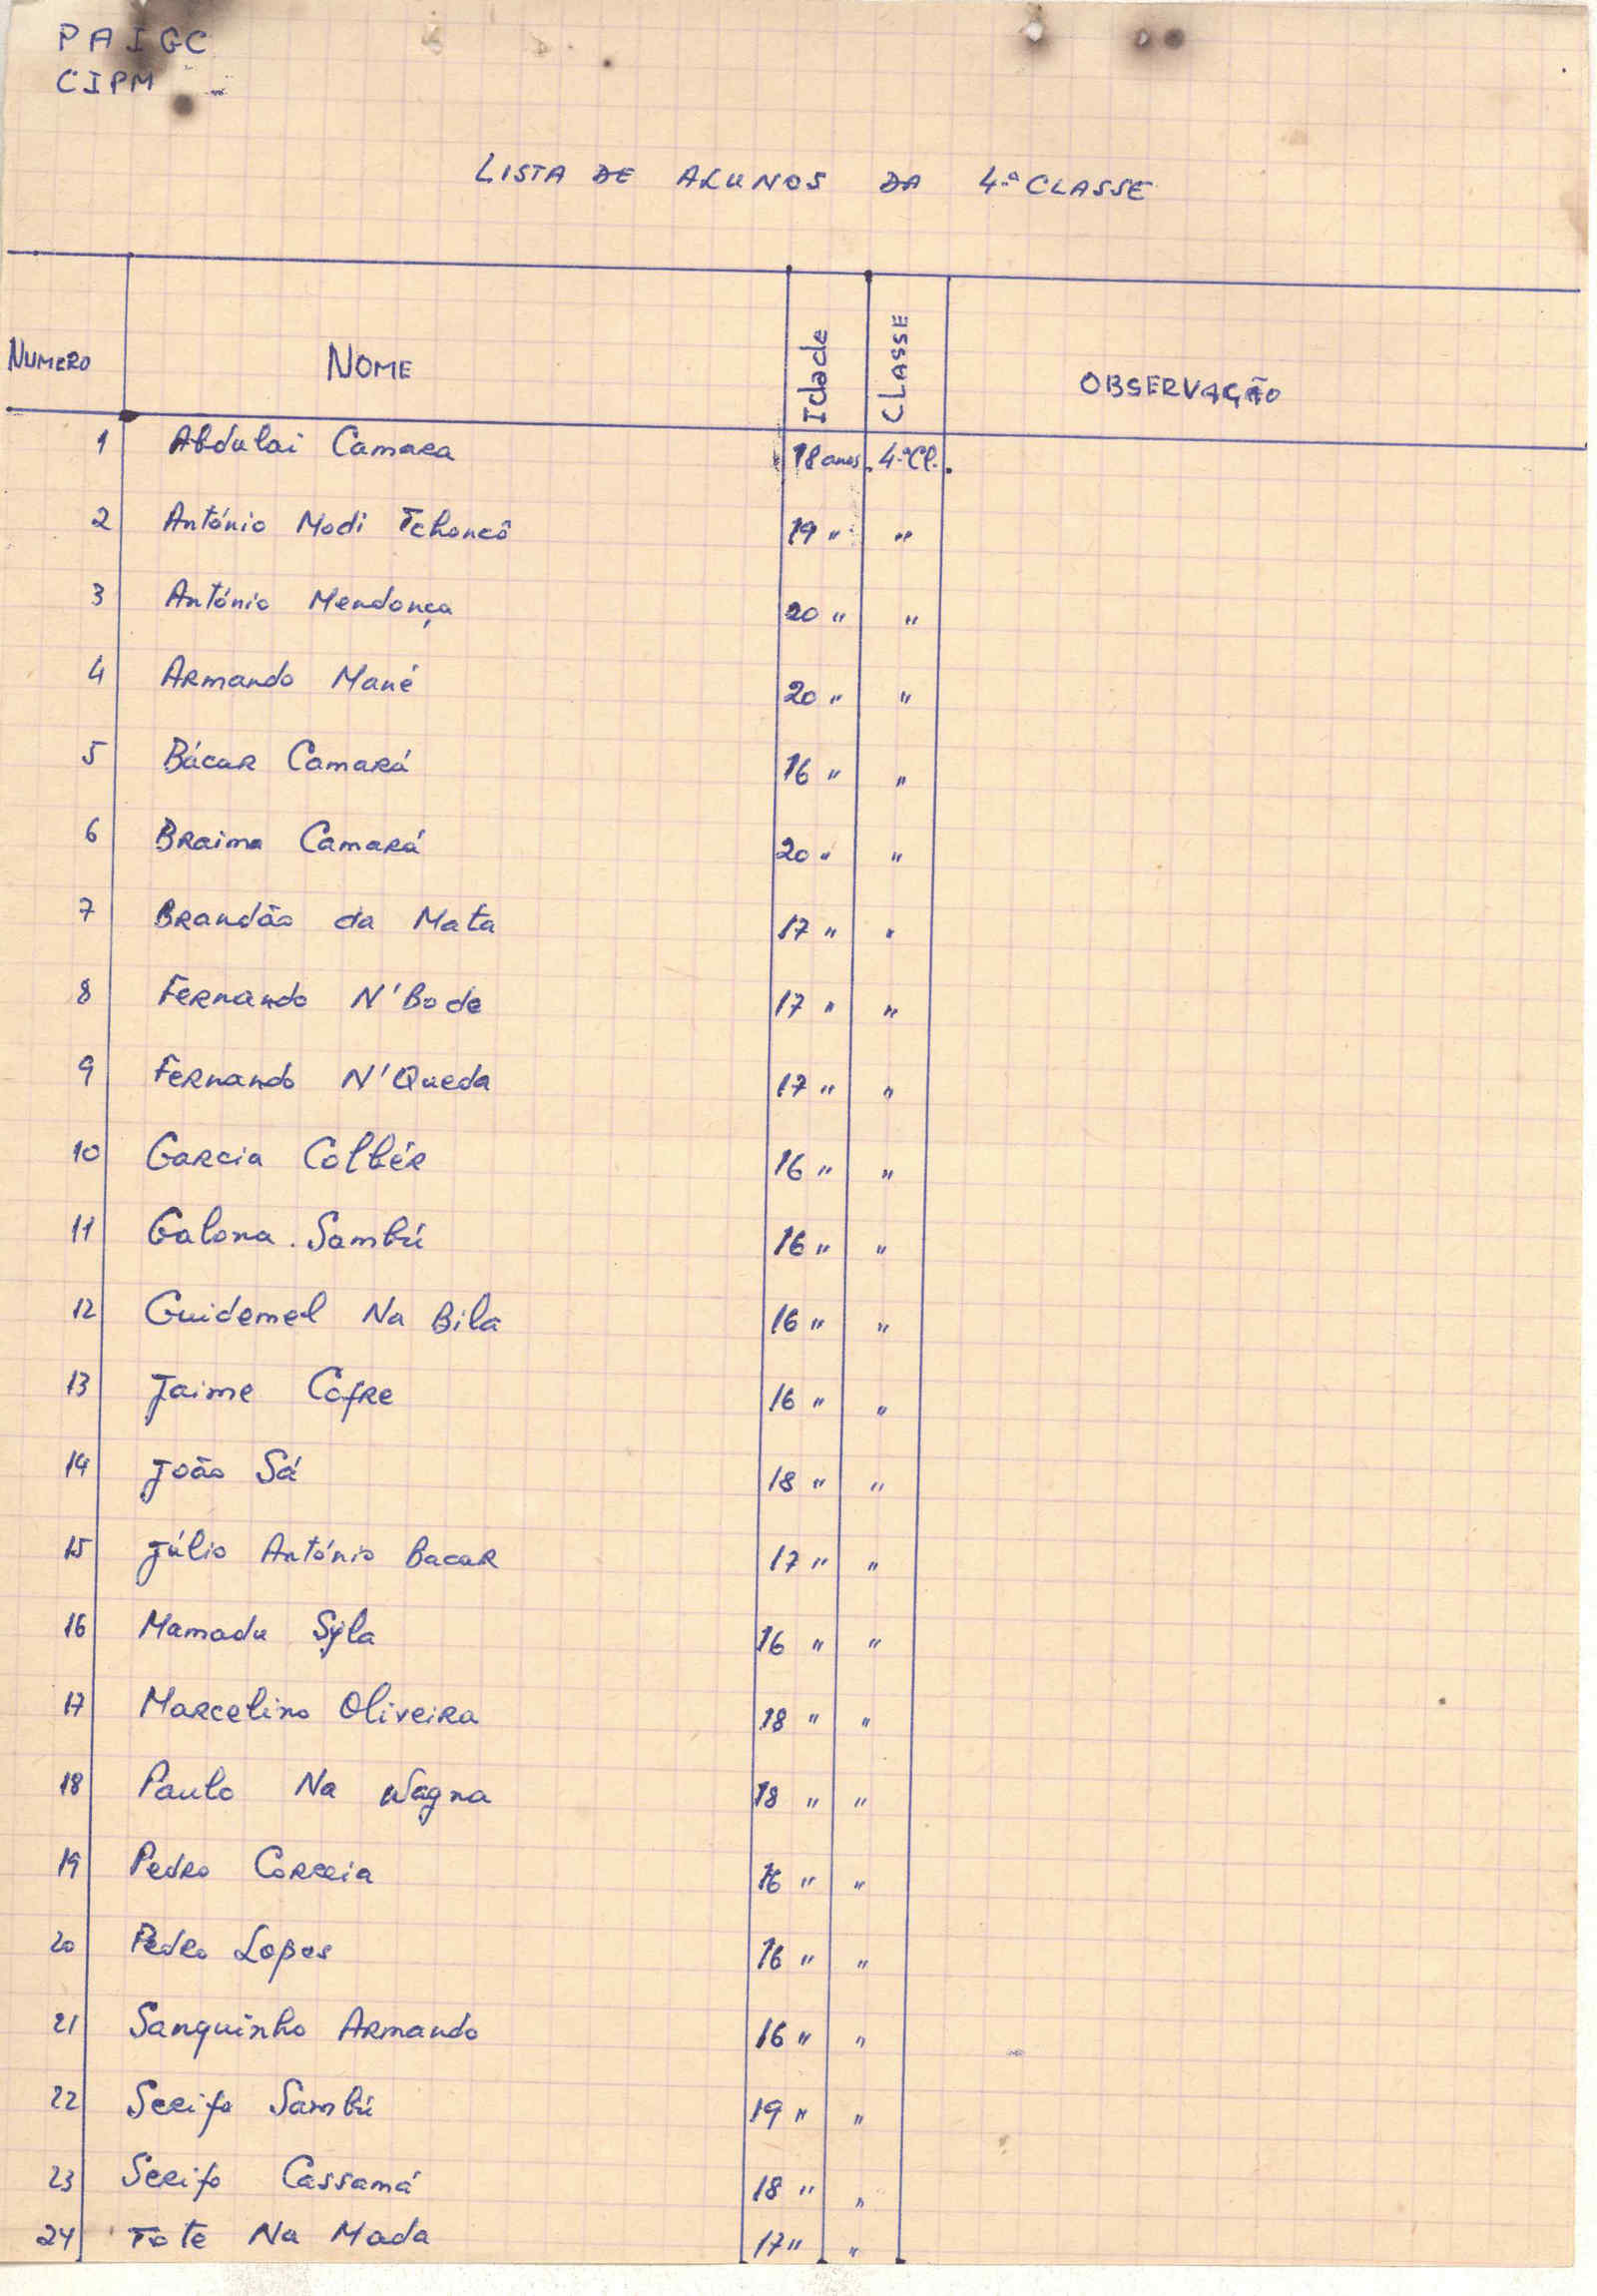 PAIGC
CIPM
LISTA DE ALUNOS DA 4.ª CLASSE
NUMERO NOME Idade CLASSE OBSERVAÇÃO
1 Abdulai Camara 18 anos 4.ª Cl.
2 António Modi Tchoncô 19 " "
3 António Mendonça 20 " "
4 Armando Mané 20 " "
5 Bácar Camará 16 " "
6 Braima Camará 20 " "
7 Brandão da Mata 17 " "
8 Fernando N'Bode 17 " "
9 Fernando N'Queda 17 " "
10 Garcia Colbér 16 " "
11 Galona Sambú 16 " "
12 Guidemel Na Bila 16 " "
13 Jaime Cofre 16 " "
14 João Sá 18 " "
15 Júlio António Bacar 17 " "
16 Mamadu Syla 16 " "
17 Marcelino Oliveira 18 " "
18 Paulo Na Wagna 18 " "
19 Pedro Correia 16 " "
20 Pedro Lopes 16 " "
21 Sanquinho Armando 16 " "
22 Serifo Sambú 19 " "
23 Serifo Cassamá 18 " "
24 Tote Na Mada 17 " "